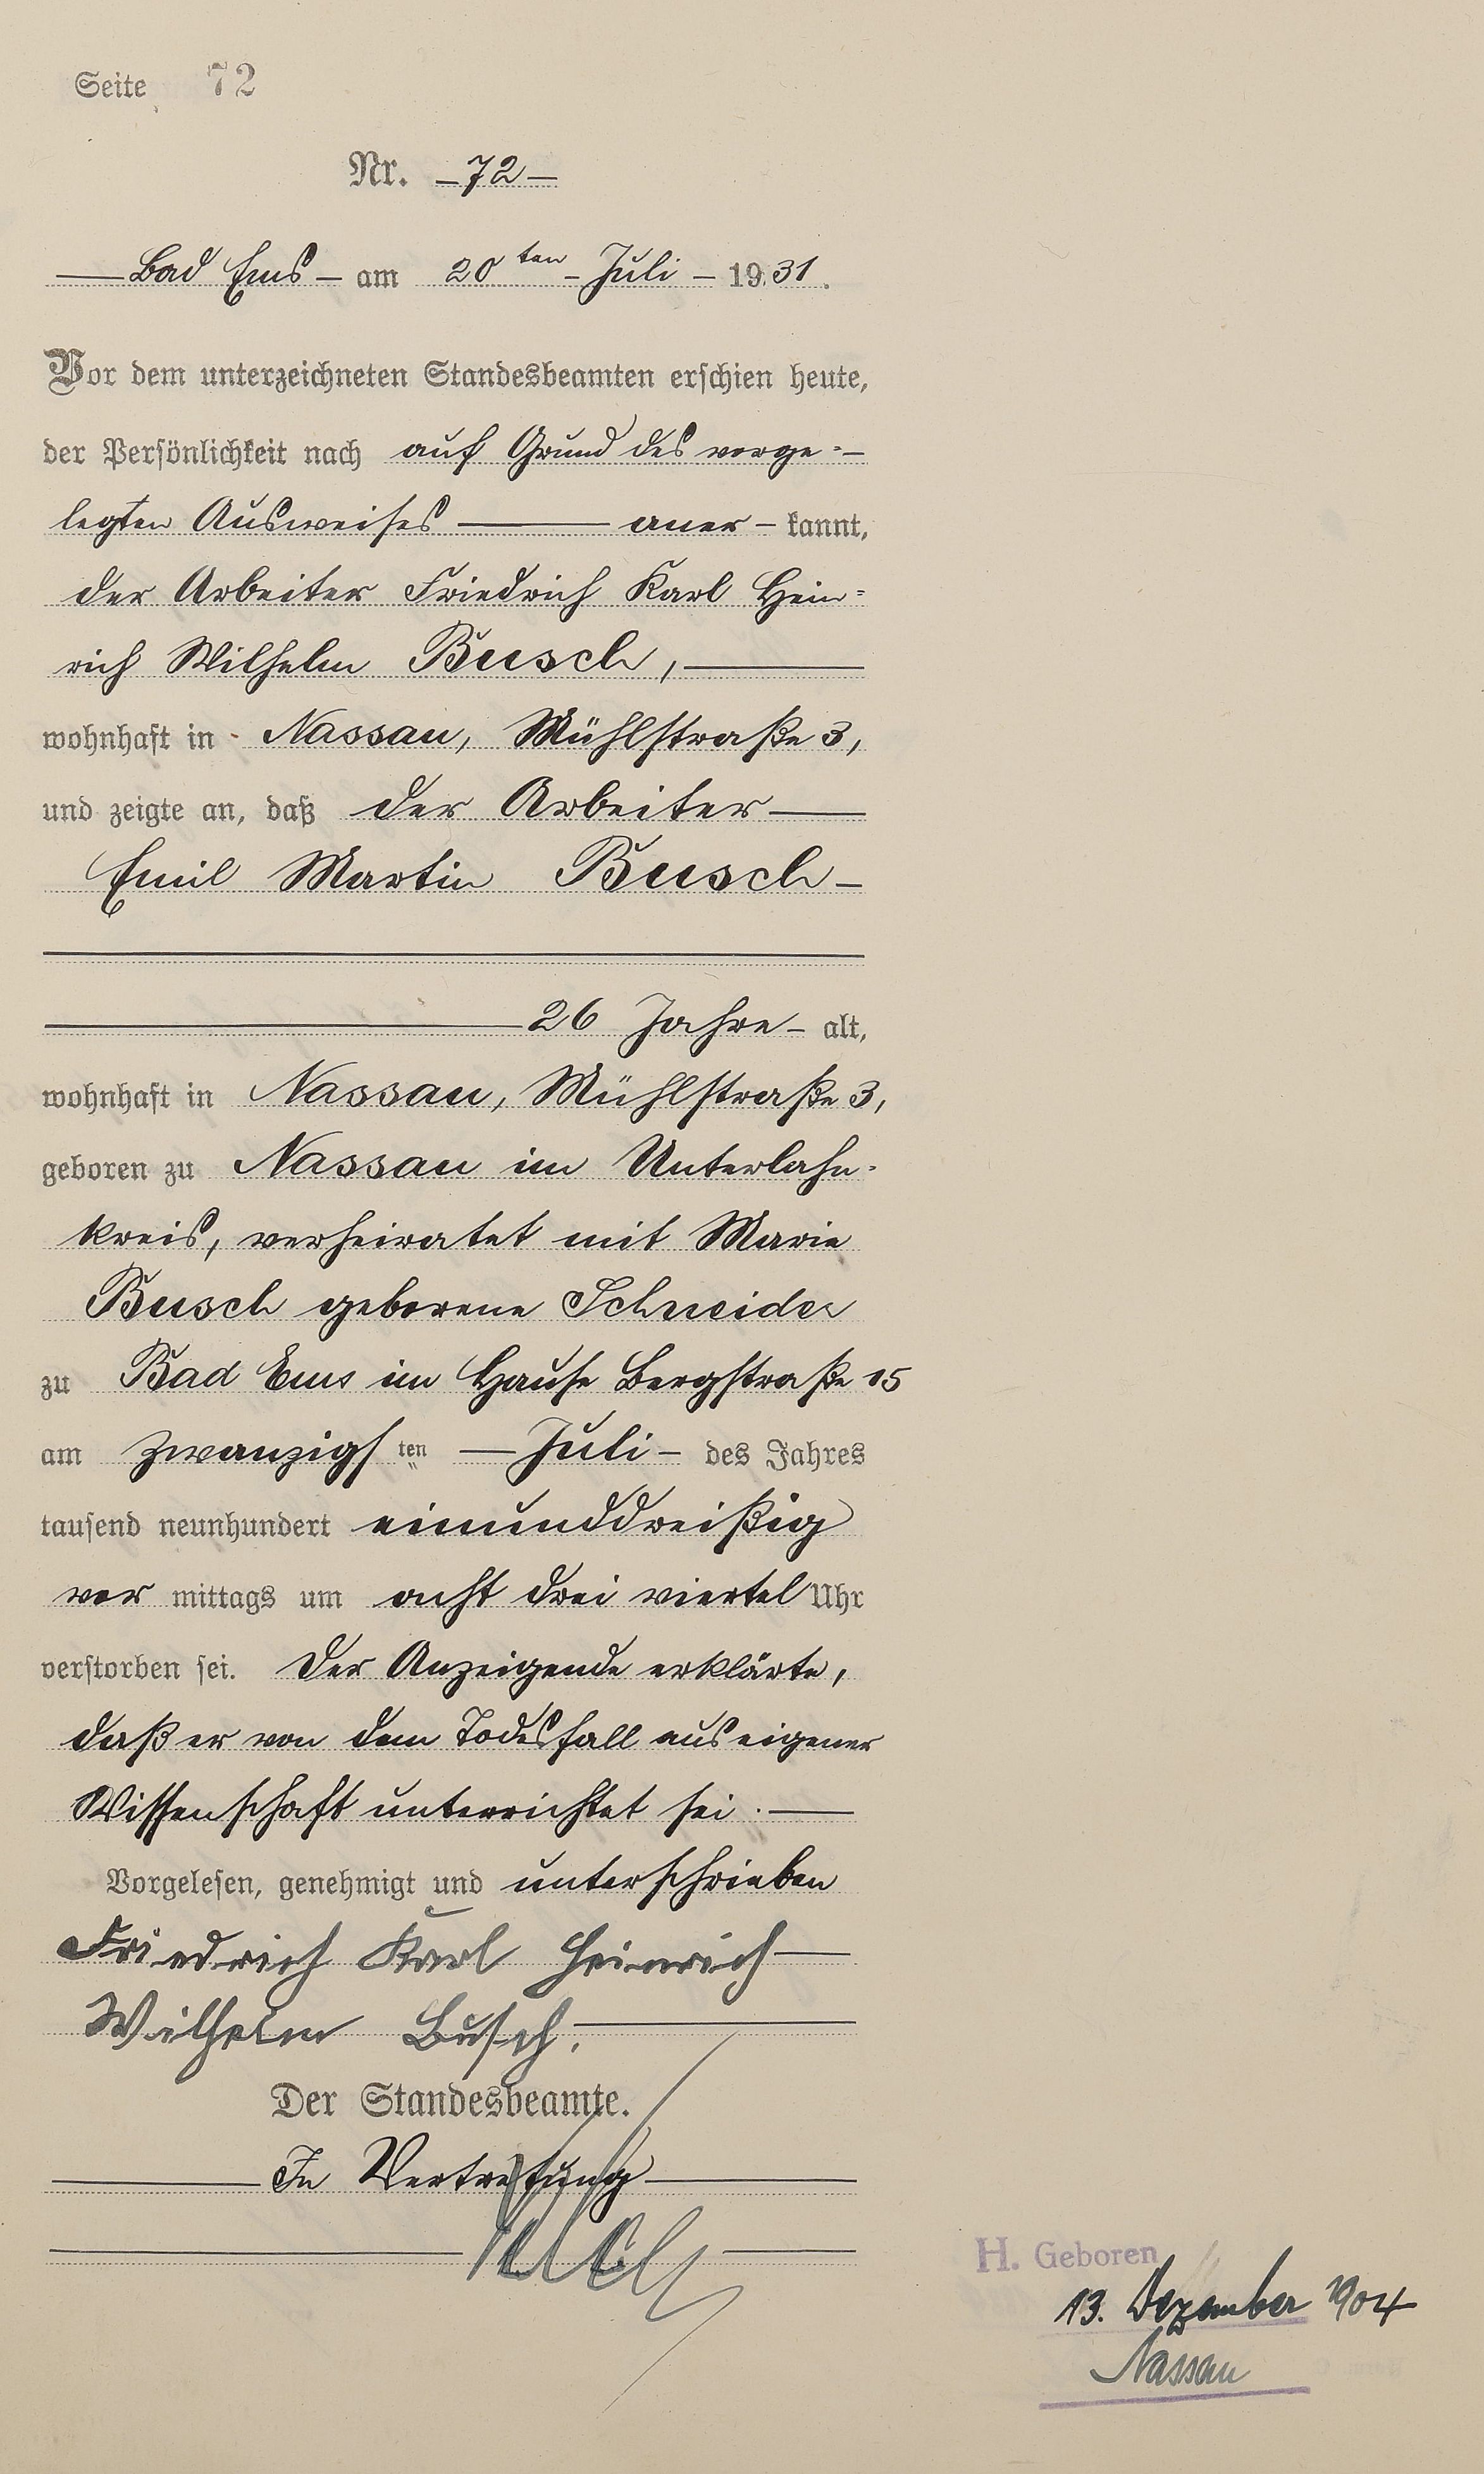 Seite 72
Nr. 72
Bad Ems am 20ten Juli 1931.
Vor dem unterzeichneten Standesbeamten erschien heute,
der Persönlichkeit nach auf Grund des vorge=
legten Ausweises aner- kannt,
der Arbeiter Friedrich Karl Hein=
rich Wilhelm Busch,
wohnhaft in Nassau, Mühlstraße 3,
und zeigte an, daß der Arbeiter
Emil Martin Busch
26 Jahre alt,
wohnhaft in Nassau, Mühlstraße 3,
geboren zu Nassau im Unterlahn-
kreis, verheiratet mit Marie
Busch geborene Schneider
zu Bad Ems im Hause Bergstraße 15
am zwanzigsten Juli des Jahres
tausend neunhundert einunddreißig
vor mittags um acht drei viertel Uhr
verstorben sei. Der Anzeigende erklärte,
daß er von dem Todesfall aus eigener
Wissenschaft unterrichtet sei.
Vorgelesen, genehmigt und unterschrieben
Friedrich Karl Heinrich
Wilhelm Busch.
Der Standesbeamte.
In Vertretung
H. Geboren
13. Dezember 1904
Nassau